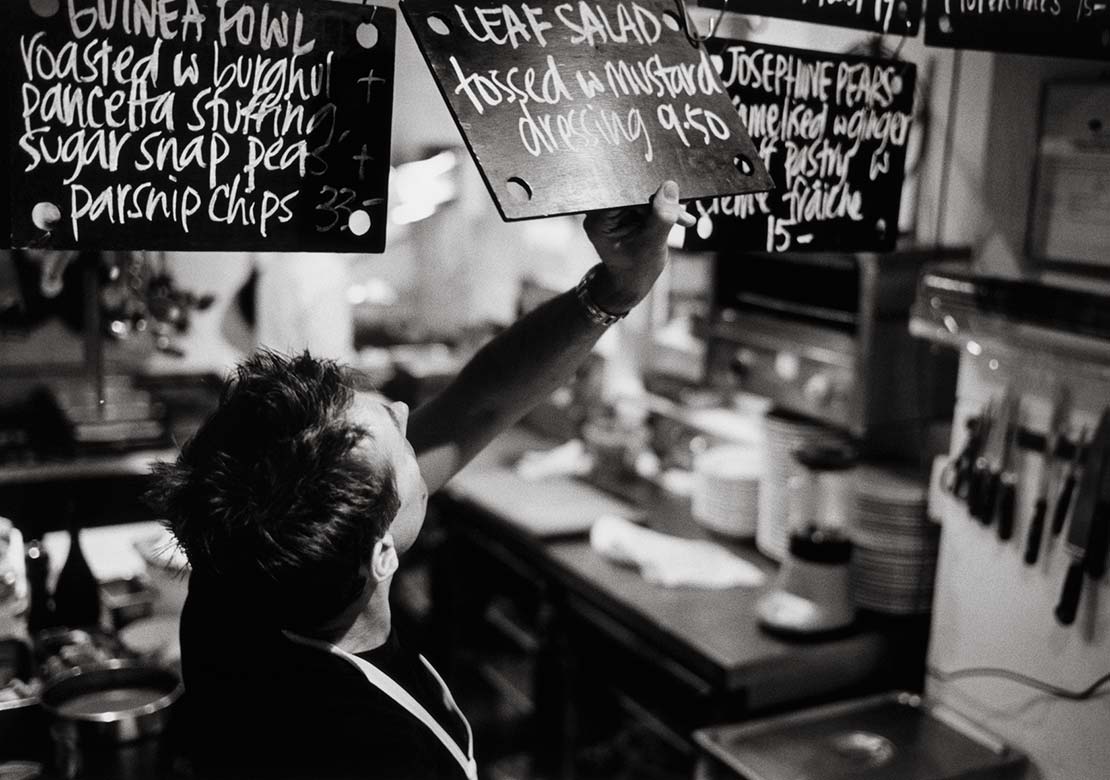 GUINEA FOWL
roasted w burghul
pancetta stuffing
sugar snap pea
parsnip chips 33-
LEAF SALAD
tossed w mustard
dressing 9.50
JOSEPHINE PEARS
w ginger
pastry w
fraiche
15-
15-